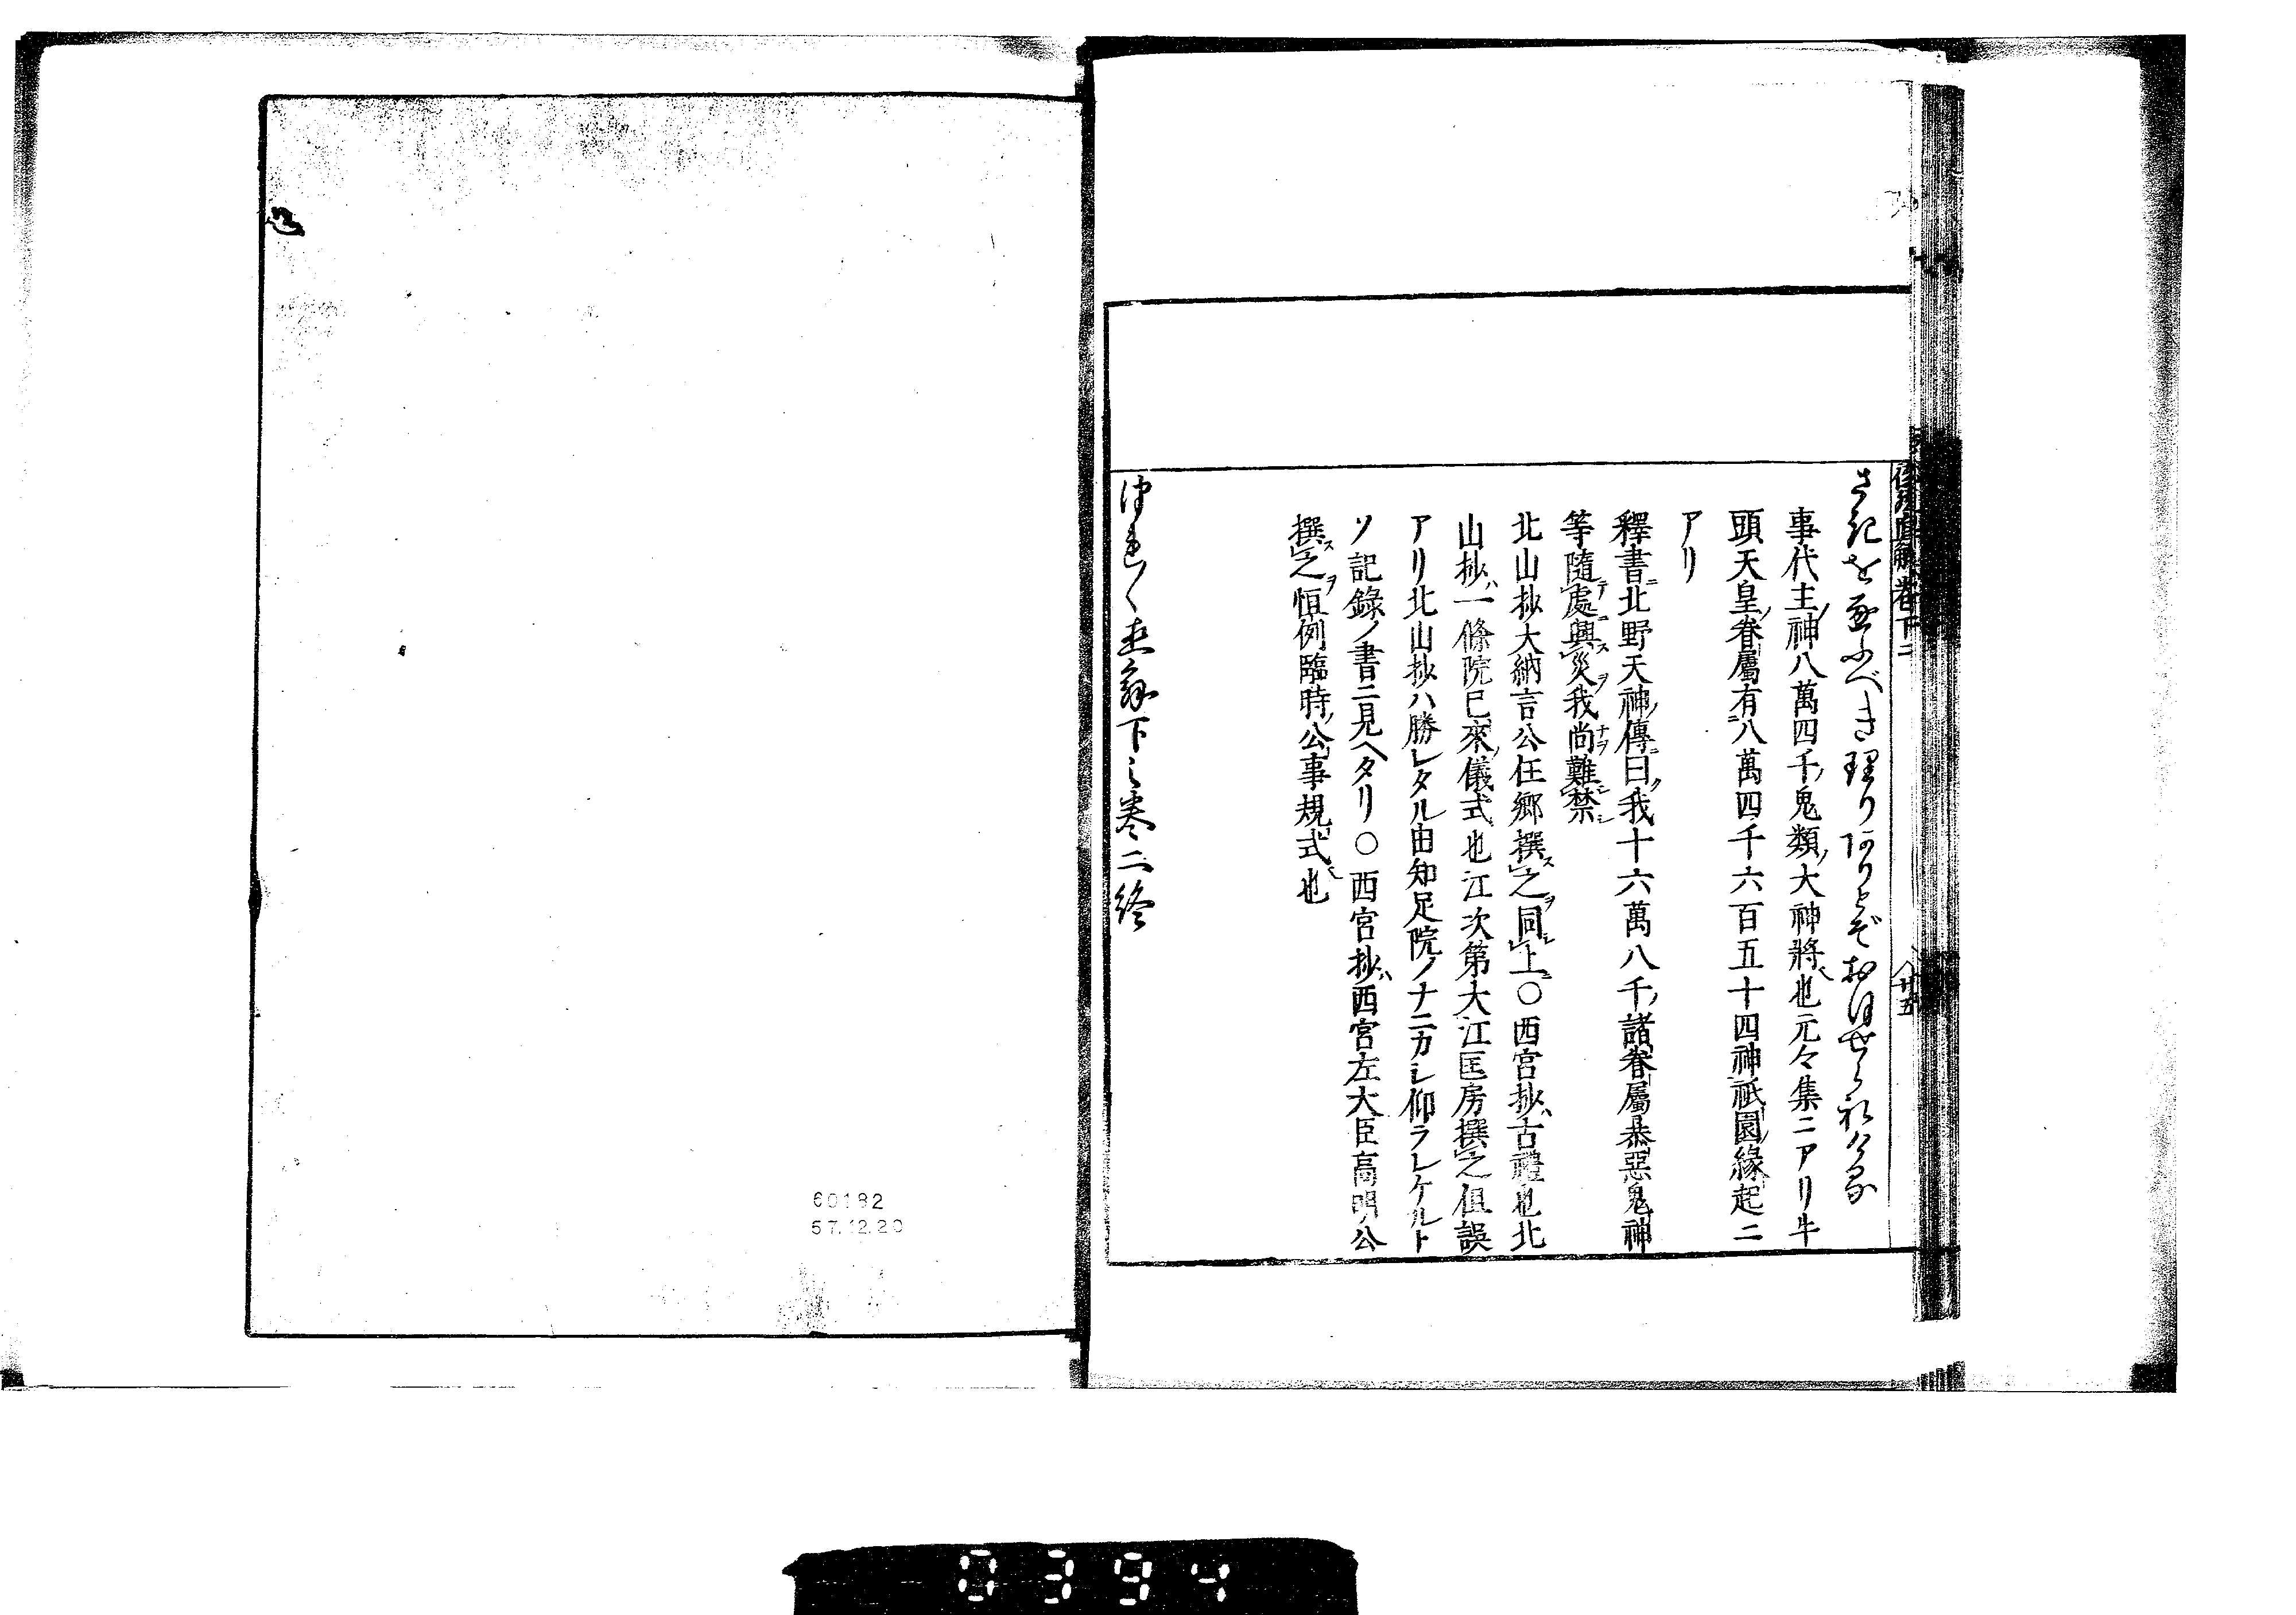 徒然直解巻下二 廿五
さきを血ふべき理りありとぞおほせられける
事代主ノ神八萬四千ノ鬼類ノ大神將也元々集ニアリ牛
頭天皇ノ眷屬有八萬四千六百五十四神祇園ノ緣起ニ
アリ
釋書ニ北野天神ノ傳ニ曰ク我十六萬八千ノ諸眷屬恭惡鬼神
等隨テ處ニ興ス災ヲ我尚ナヲ難シ禁シ
北山抄大納言公任卿撰ス之ヲ同シ上ニ〇西宮抄ハ古禮也北
山抄ハ一條院已來ノ儀式也江次第大江匡房撰之但誤
アリ北山抄ハ勝レタル由知足院ノナニカシ仰ラレケルト
ソ記錄ノ書ニ見ヘタリ〇西宮抄ハ西宮左大臣高明ノ公
撰ス之ヲ恒例臨時ノ公事規式也
つれ〳〵直解下之巻二終
60182
57.12.20
0394